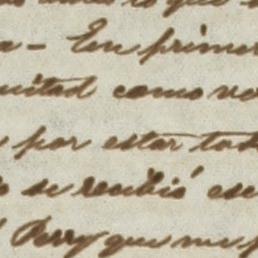 que
a - En primer
como
por estar tod
se recibió ese
Perry que me p